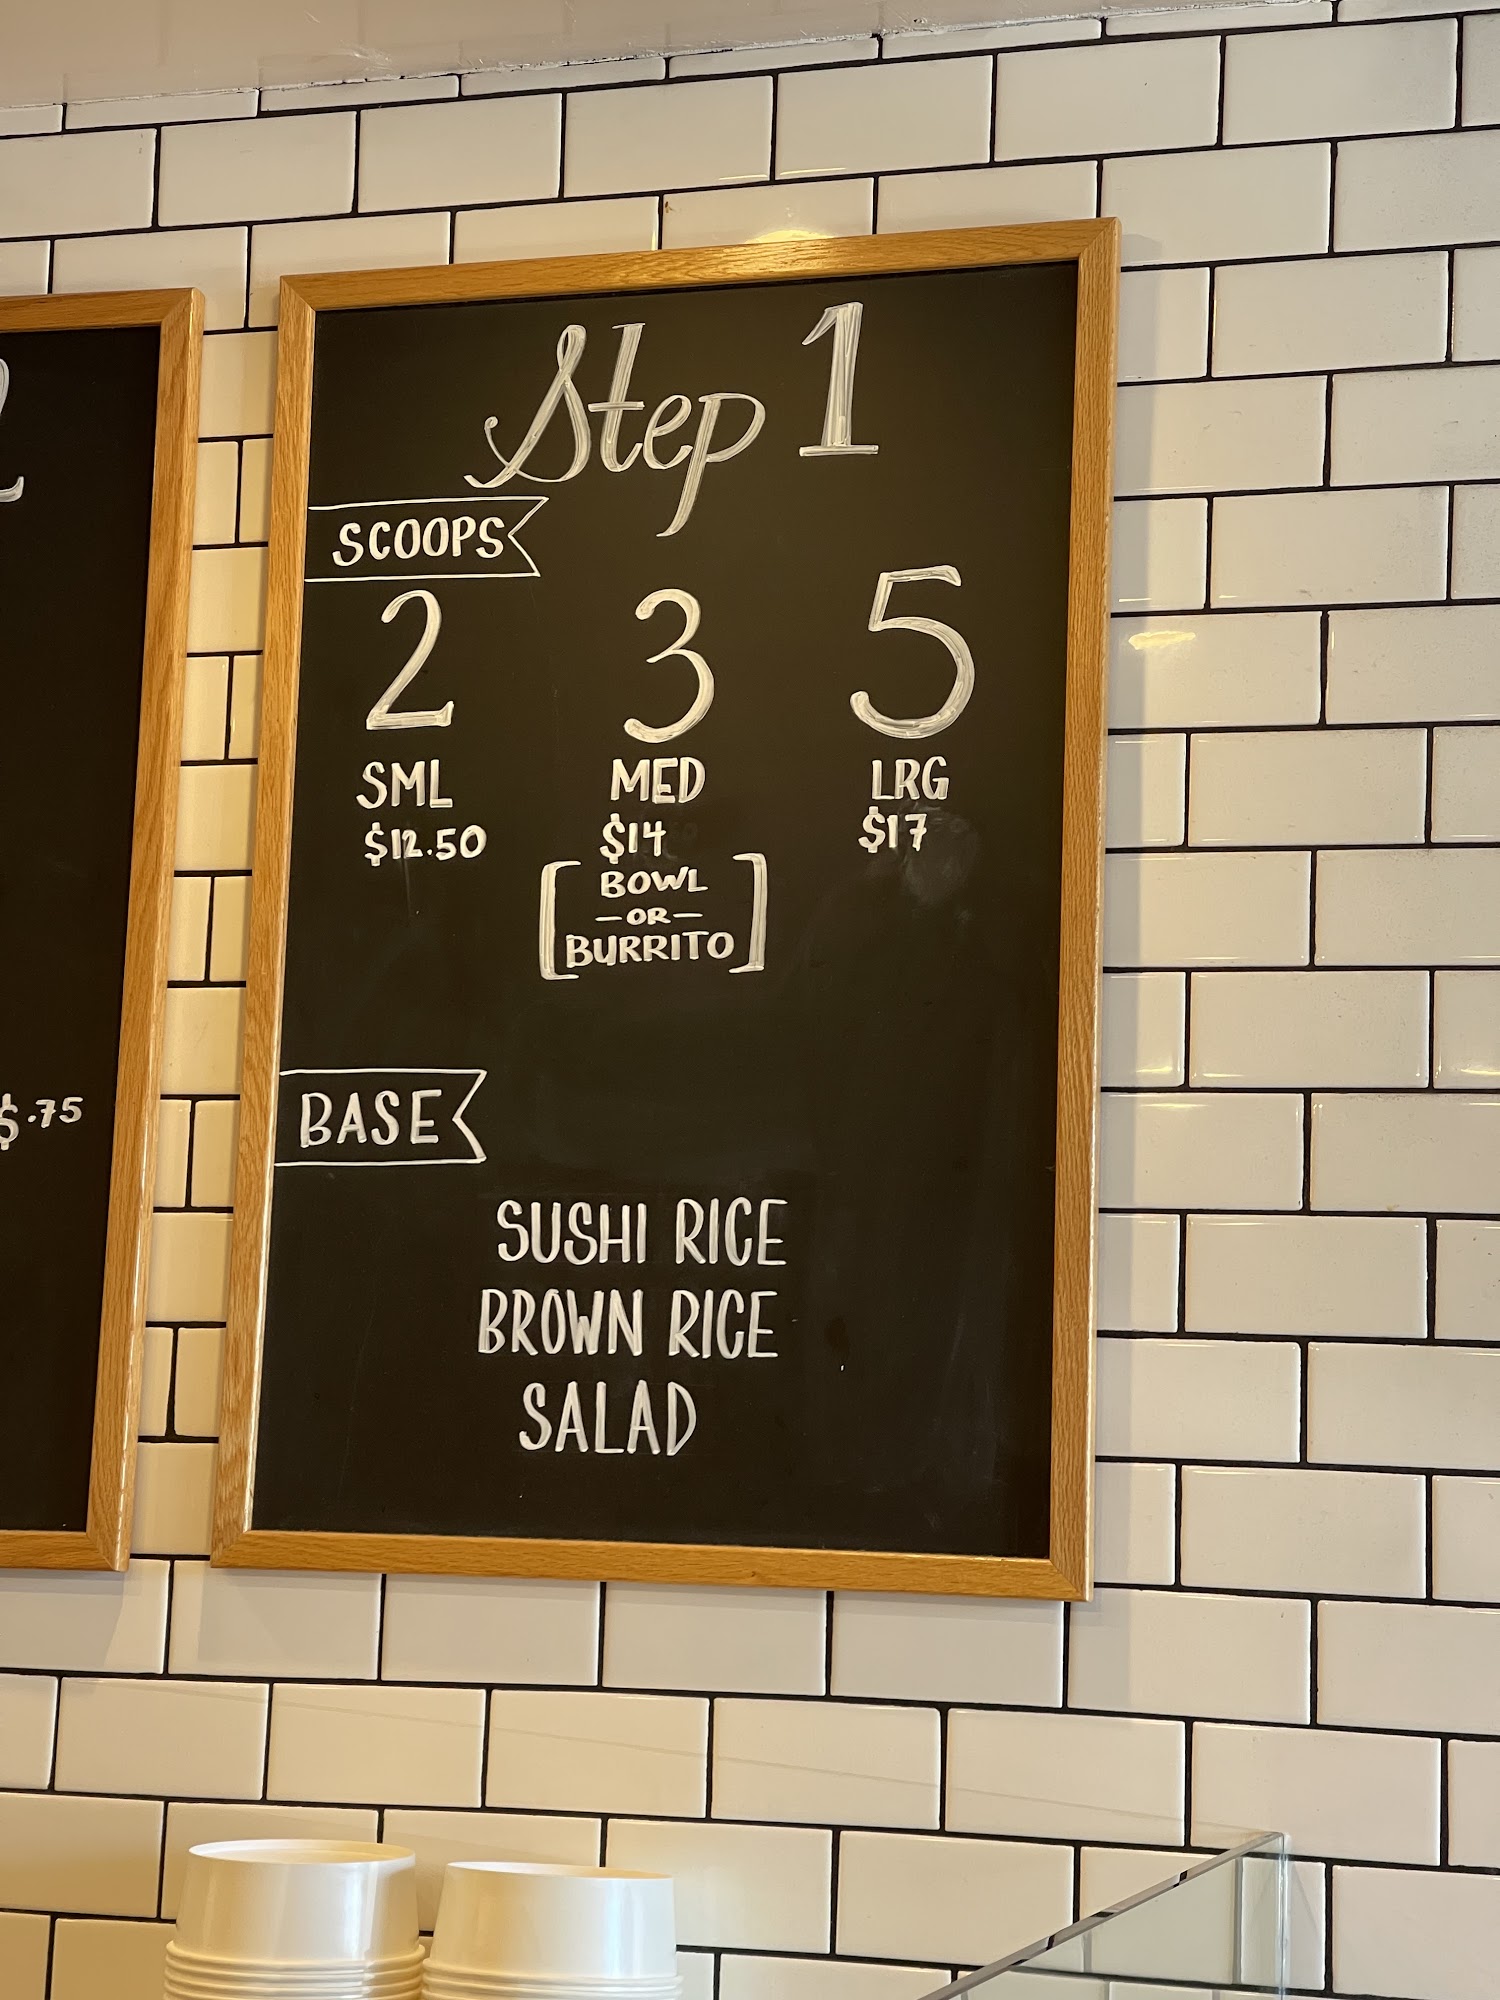 Step 1
SCOOPS
2 3 5
SML MED LRG
$12.50 $14 $17
[BOWL
-OR-
BURRITO]
BASE
SUSHI RICE
BROWN RICE
SALAD
2
$.75